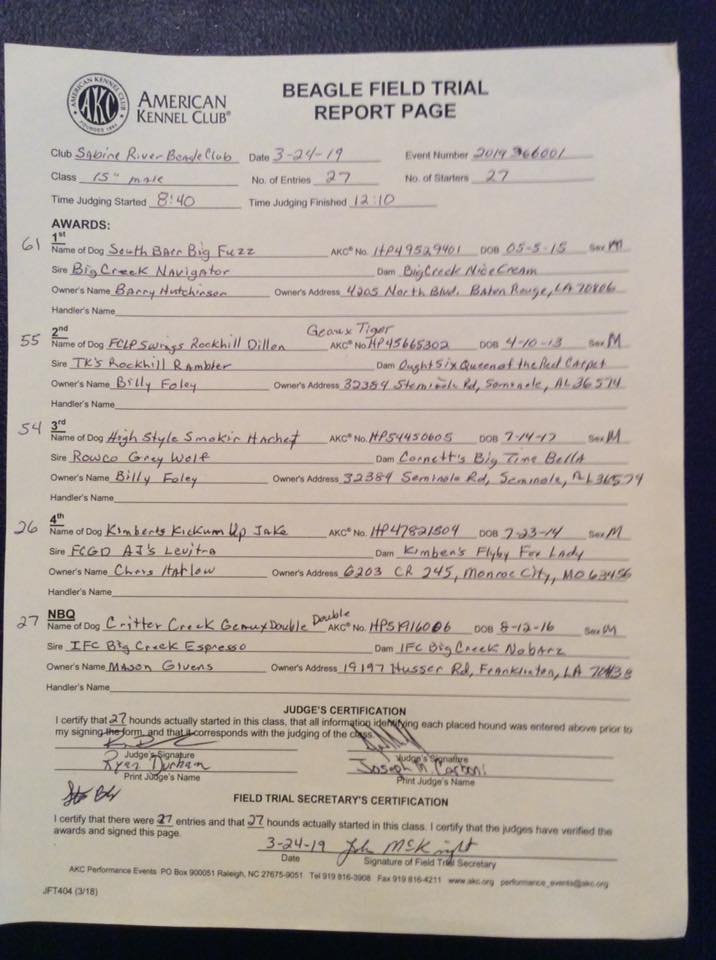 AMERICAN KENNEL CLUB
AKC
FOUNDED 1884
AMERICAN
KENNEL CLUB®
BEAGLE FIELD TRIAL
REPORT PAGE
Club Sabine River Beagle Club Date 3-24-19 Event Number 2019366001
Class 15" male No. of Entries 27 No. of Starters 27
Time Judging Started 8:40 Time Judging Finished 12:10
AWARDS:
1st
61 Name of Dog South Barr Big Fuzz AKC® No. HP49529401 DOB 05-5-15 Sex M
Sire Big Creek Navigator Dam Big Creek Nice Cream
Owner's Name Barry Hutchinson Owner's Address 4205 North Blvd. Baton Rouge, LA 70806
Handler's Name
2nd Geaux Tiger
55 Name of Dog FCLP Swings Rockhill Dillon AKC® No. HP45665302 DOB 4-10-13 Sex M
Sire TK's Rockhill Rambler Dam Ought Six Queen of the Red Carpet
Owner's Name Billy Foley Owner's Address 32384 Seminole Rd, Seminole, AL 36574
Handler's Name
3rd
54 Name of Dog High Style Smokin Hachet AKC® No. HP54450605 DOB 7-14-17 Sex M
Sire Rowco Grey Wolf Dam Cornett's Big Time Bella
Owner's Name Billy Foley Owner's Address 32384 Seminole Rd, Seminole, AL 36574
Handler's Name
4th
26 Name of Dog Kimbers Kickum Up Jake AKC® No. HP47821504 DOB 7-23-14 Sex M
Sire FCGD AJ's Levitra Dam Kimben's Flyby For Lady
Owner's Name Chris Hatlow Owner's Address 6203 CR 245, Monroe City, MO 63456
Handler's Name
NBQ Double
27 Name of Dog Critter Creek Geaux Double AKC® No. HP51916006 DOB 8-12-16 Sex M
Sire IFC Big Creek Espresso Dam IFC Big Creek No Barz
Owner's Name Mason Givens Owner's Address 19197 Husser Rd, Franklinton, LA 70438
Handler's Name
JUDGE'S CERTIFICATION
I certify that 27 hounds actually started in this class, that all information identifying each placed hound was entered above prior to
my signing the form, and that it corresponds with the judging of the class.
Judge's Signature Judge's Signature
Ryan Durham Joseph M. Carboni
Print Judge's Name Print Judge's Name
FIELD TRIAL SECRETARY'S CERTIFICATION
I certify that there were 27 entries and that 27 hounds actually started in this class. I certify that the judges have verified the
awards and signed this page.
3-24-19 John McKnight
Date Signature of Field Trial Secretary
AKC Performance Events PO Box 900051 Raleigh, NC 27675-9051 Tel 919 816-3908 Fax 919 816-4211 www.akc.org performance_events@akc.org
JFT404 (3/18)